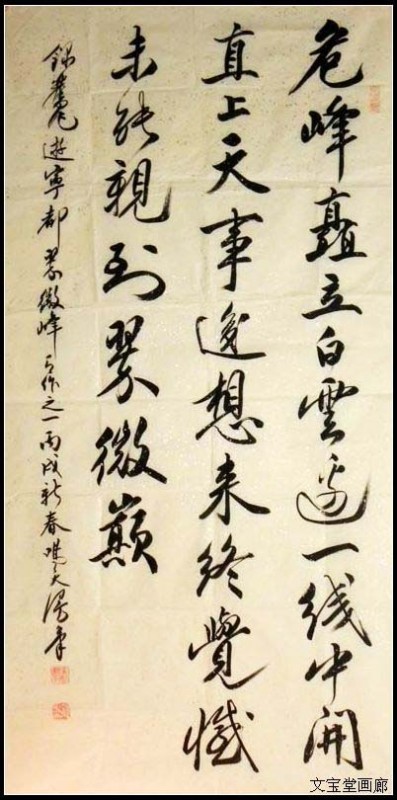 危峰矗立白雲邊一线中開
直上天事後想来終覺憾
未能親到翠微巔
錄 遊寧都翠微峰 作之一丙戌新春 天
文宝堂画廊